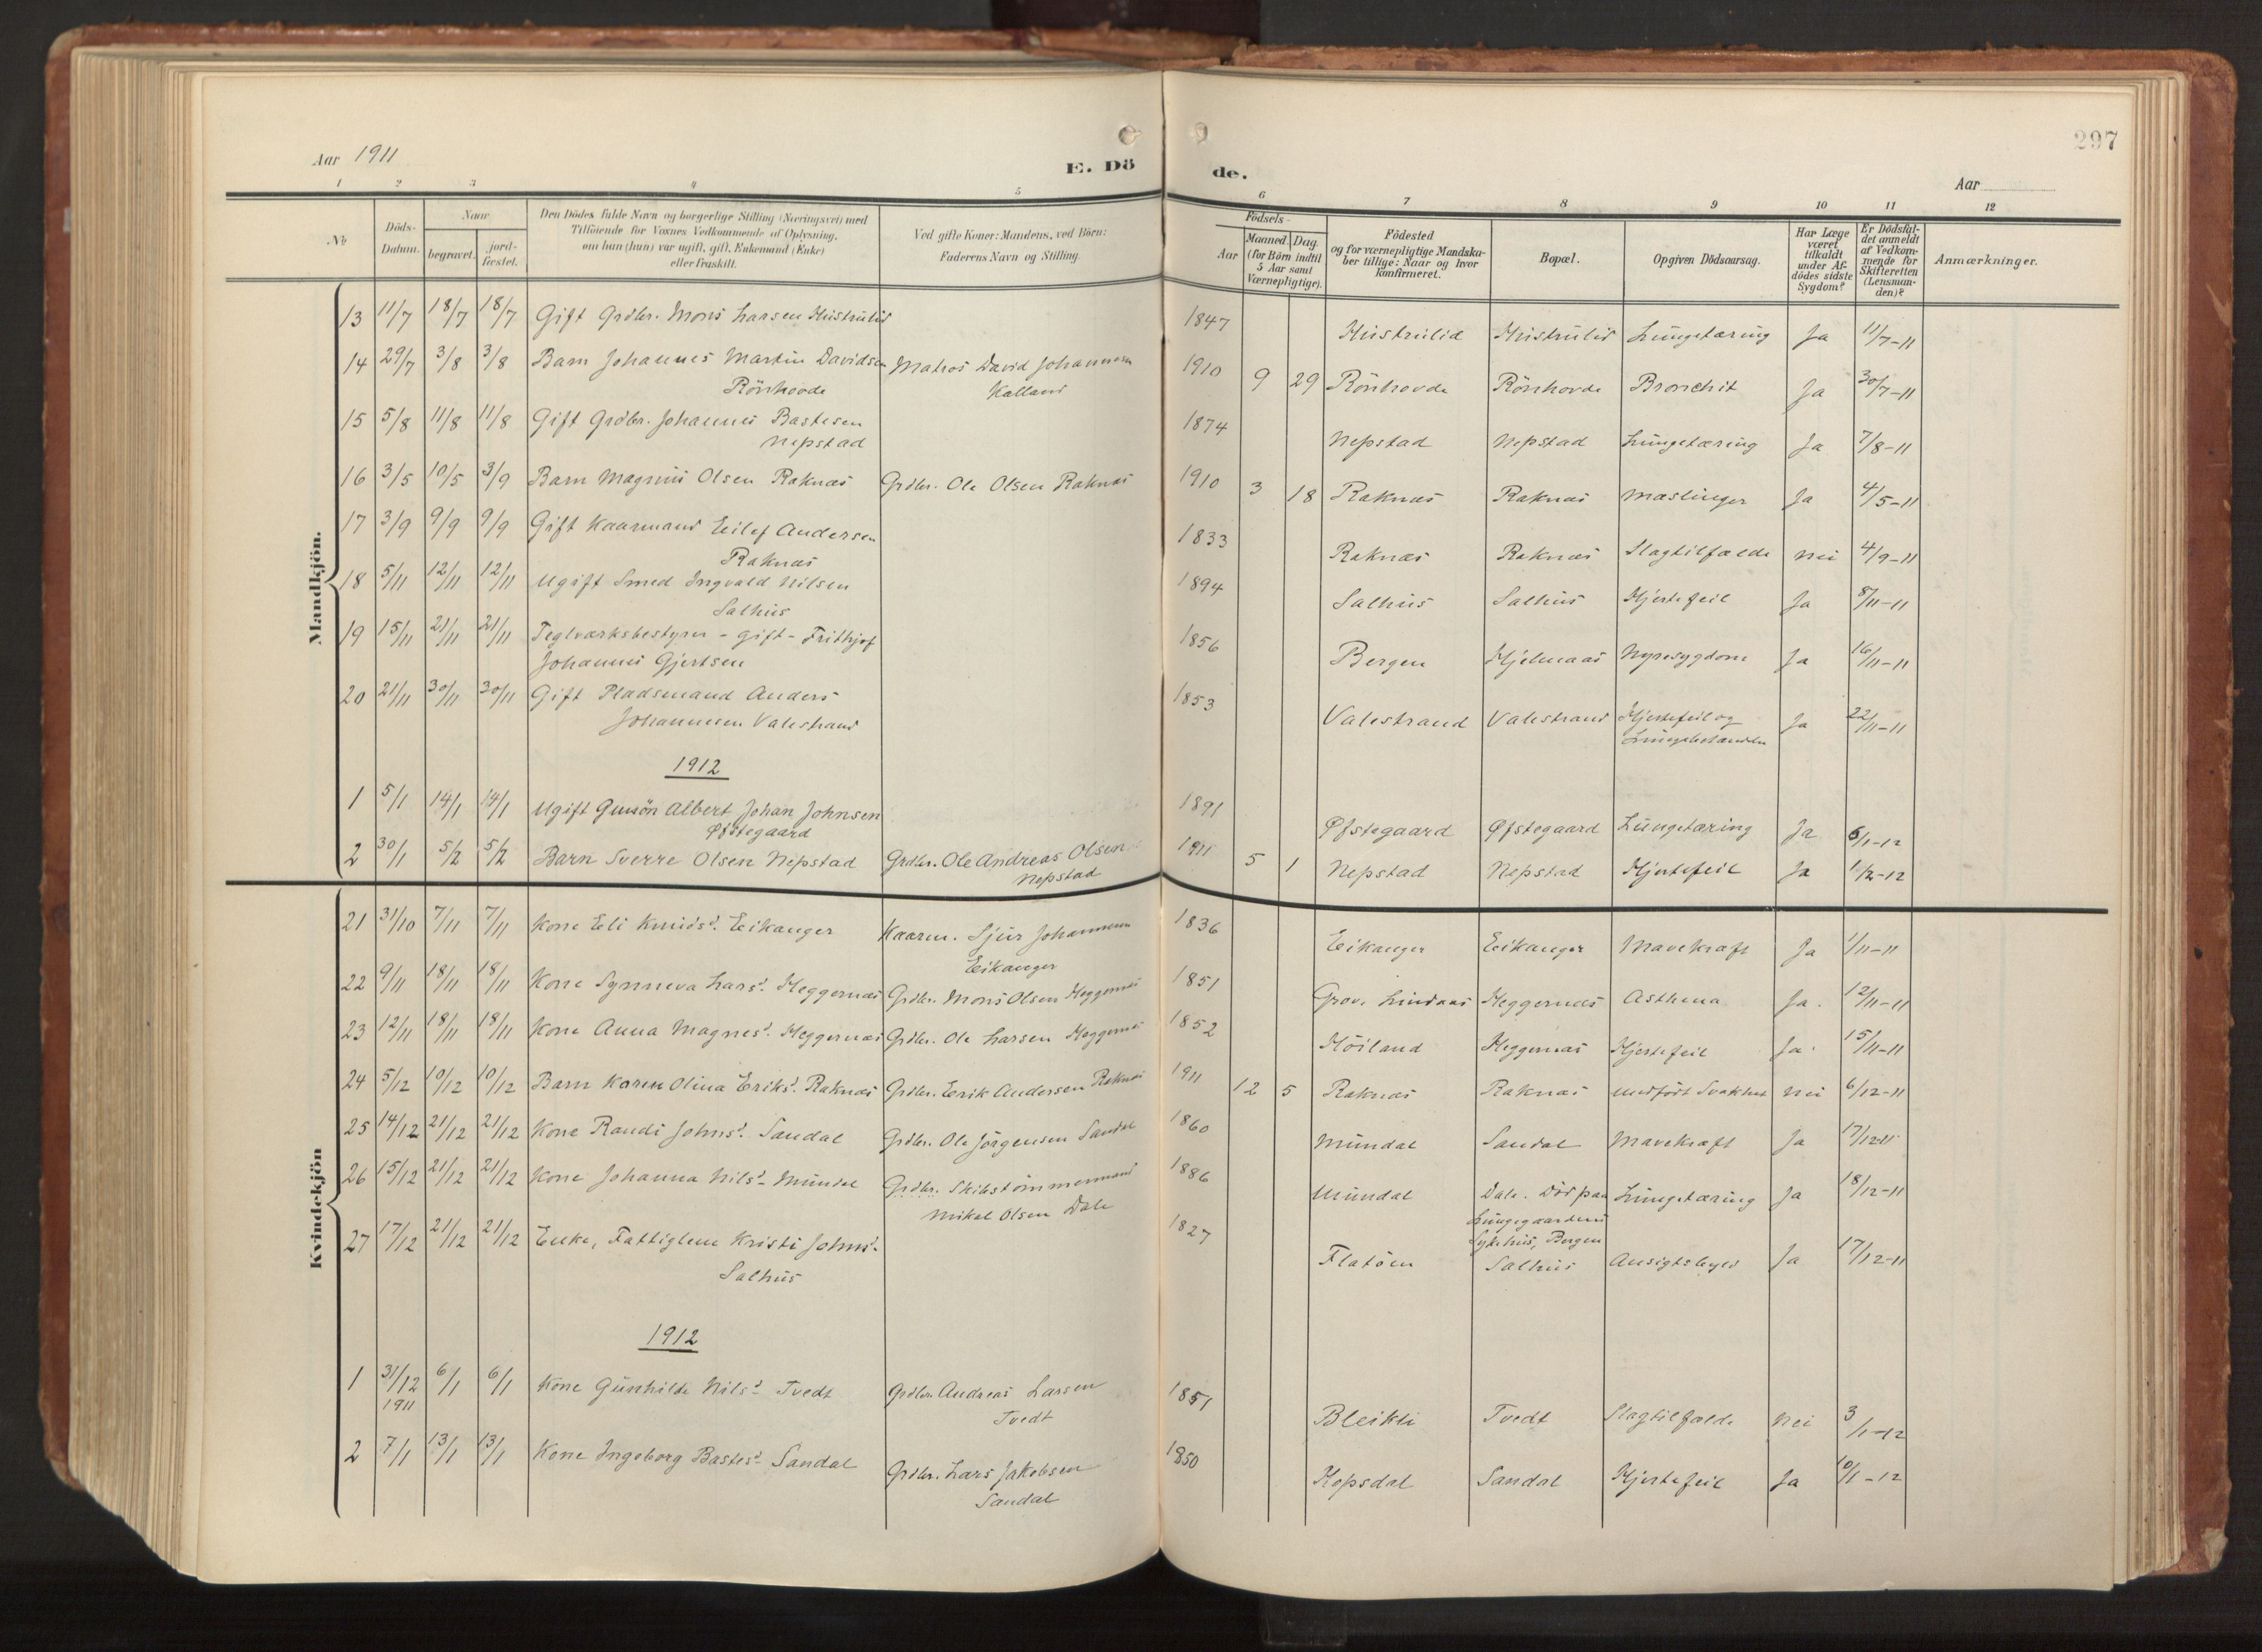 297
Aar 1911
E. Dö
de.
Aar
1 2 3 4 5 6 7 8 9 10 11 12
№
Döds-Datum.
Naar
begravet.
jord-fæstet.
Den Dödes fulde Navn og borgerlige Stilling (Næringsvei) med
Tilföiende for Voxnes Vedkommende af Oplysning,
om han (hun) var ugift, gift, Enkemand (Enke)
eller fraskilt.
Ved gifte Koner: Mandens, ved Börn:
Faderens Navn og Stilling.
Födsels-
Aar
Maaned. Dag.
(for Börn indtil
5 Aar samt
Værnepligtige).
Födested
og for værnepligtige Mandska-
ber tillige: Naar og hvor
konfirmeret.
Bopæl.
Opgiven Dödsaarsag.
Har Læge
været
tilkaldt
under Af-
dödes sidste
Sygdom?
Er Dödsfal-
det anmeldt
af Vedkom-
mende for
Skifteretten
(Lensman-
den)?
Anmærkninger.
Mandkjön.
13 11/7 18/7 18/7 Gift Grdbr. Mons Larsen Hustrulid 1847 Hustrulid Hustrulid Lungetæring Ja 11/7-11
14 29/7 3/8 3/8 Barn Johannes Martin Davidsen Matros David Johannesen 1910 9 29 Rönhovde Rönhovde Bronchit Ja 30/7-11
Rönhovde Kalland
15 5/8 11/8 11/8 Gift Grdbr. Johannes Bastesen 1874 Nepstad Nepstad Lungetæring Ja 7/8-11
Nepstad
16 3/5 10/5 3/9 Barn Magnus Olsen Raknæs Grdbr. Ole Olsen Raknæs 1910 3 18 Raknæs Raknæs Mæslinger Ja 4/5-11
17 3/9 9/9 9/9 Gift Kaarmand Eilef Andersen 1833 Raknæs Raknæs Slagtilfælde Nei 4/9-11
Raknæs
18 5/11 12/11 12/11 Ugift Smed Ingvald Nilsen 1894 Salhus Salhus Hjertefeil Ja 8/11-11
Salhus
19 15/11 21/11 21/11 Teglværksbestyrer - gift - Frithjof 1856 Bergen Hjelmaas Nyresygdom Ja 16/11-11
Johannes Gjertsen
20 21/11 30/11 30/11 Gift Pladsmand Anders 1853 Valestrand Valestrand Hjertefeil og Ja 22/11-11
Johannesen Valestrand
1912
1 5/1 14/1 14/1 Ugift Gmsön Albert Johan Johnsen 1891 Øfstegaard Øfstegaard Lungetæring Ja 6/1-12
Øfstegaard
2 30/1 5/2 5/2 Barn Sverre Olsen Nepstad Grdbr. Ole Andreas Olsen 1911 5 1 Nepstad Nepstad Hjertefeil Ja 1/2-12
Nepstad
Kvindekjön
21 31/10 7/11 7/11 Kone Eli Knudsd. Eikanger Kaarm. Sjur Johannesen 1836 Eikanger Eikanger Mavekræft Ja 1/11-11
Eikanger
22 9/11 18/11 18/11 Kone Synneva Larsd. Heggernæs Grdbr. Mons Olsen Heggernæs 1851 Grov, Lindaas Heggernæs Asthma Ja. 12/11-11
23 12/11 18/11 18/11 Kone Anna Magnesd. Heggernæs Grdbr. Ole Larsen Heggernæs 1852 Höiland Heggernæs Hjertefeil Ja. 15/11-11
24 5/12 10/12 10/12 Barn Karen Olina Eriksd. Raknæs Grdbr. Erik Andersen Raknæs 1911 12 5 Raknæs Raknæs Medfödt Svakhet Nei 6/12-11
25 14/12 21/12 21/12 Kone Randi Johnsd. Sandal Grdbr. Ole Jörgensen Sandal 1860 Mundal Sandal Mavekræft Ja 17/12-11
26 15/12 21/12 21/12 Kone Johanna Nilsd. Mundal Grdbr. Skibstömmermand 1886 Mundal Dale. Död paa Lungetæring Ja 18/12-11
Mikal Olsen Dale Lungegaardens
Sykehus, Bergen
27 17/12 21/12 21/12 Enke, Fattiglem Kristi Johnsd. 1827 Flatöen Salhus Ansigtsbyld Ja 17/12-11
Salhus
1912
1 31/12 6/1 6/1 Kone Gunhilde Nilsd. Tvedt Grdbr. Andreas Larsen 1851 Bleikli Tvedt Slagtilfælde Nei 3/1-12
1911 Tvedt
2 7/1 13/1 13/1 Kone Ingeborg Bastesd. Sandal Grdbr. Lars Jakobsen 1850 Kopsdal Sandal Hjertefeil Ja 10/1-12
Sandal